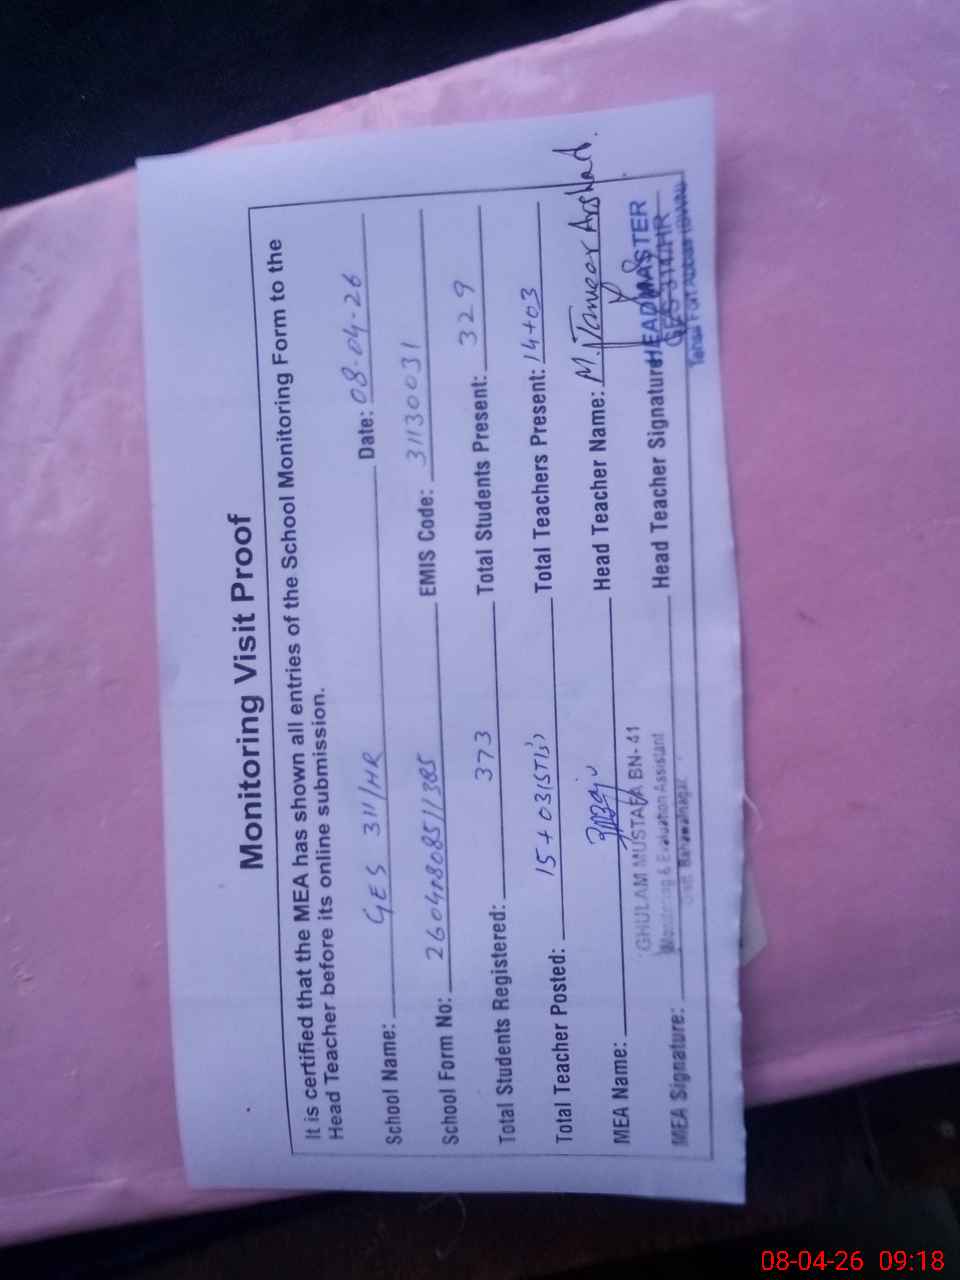 Monitoring Visit Proof
It is certified that the MEA has shown all entries of the School Monitoring Form to the
Head Teacher before its online submission.
School Name: GES 311/HR Date: 08-04-26
School Form No: 26040808511385 EMIS Code: 31130031
Total Students Registered: 373 Total Students Present: 329
Total Teacher Posted: 15+03(STI,s) Total Teachers Present: 14+03
MEA Name: Head Teacher Name: M. Tanveer Arshad.
GHULAM MUSTAFA BN-41
Monitoring & Evaluation Assistant
Distt. Bahawalnagar
MEA Signature: Head Teacher Signature:
HEADMASTER
GES 311/HR
Tehsil Fort Abbas (BWN)
08-04-26 09:18